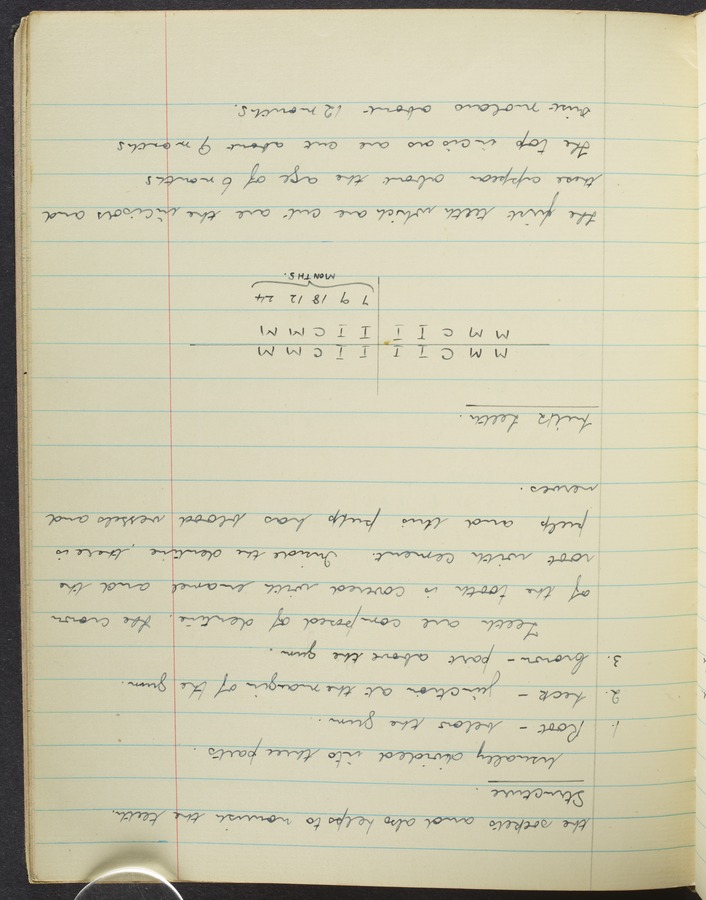 the sockets and also helps to nourish the teeth.
Structure.
Usually divided into three parts.
1. Root - below the gum.
2. neck - junction at the margin of the gum.
3. Crown - part above the gum.
Teeth are composed of dentine, the crown
of the tooth is covered with enamel and the
root with cement. Inside the dentine, there is
pulp and this pulp has blood vessels and
nerves.
Milk teeth.
M M C I I I I C M M
M M C I I I I C M M
7 9 18 12 24
MONTHS.
the first teeth which are cut are the incisors and
these appear about the age of 6 months
the top incisors are cut about 9 months
first molars about 12 months.